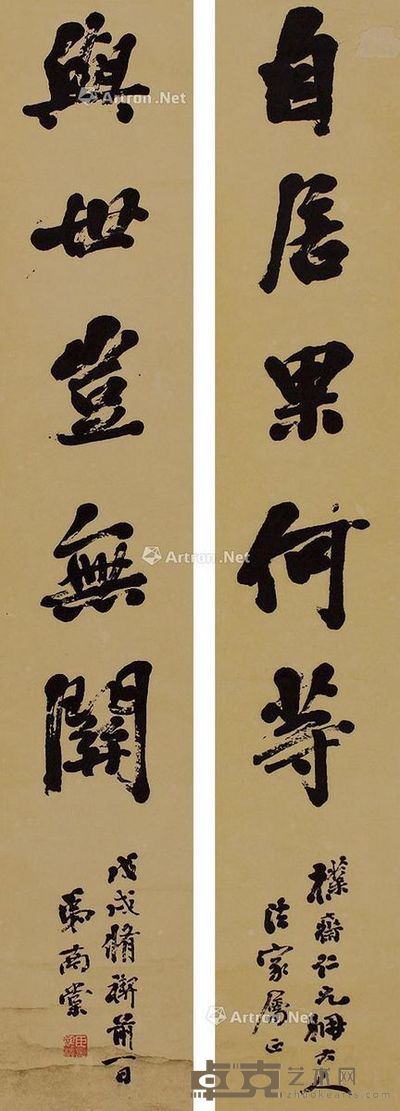 自居果何等
檏齋仁兄姻大人
法家屬正
與世豈無關
戊戌脩禊前一日
南棠
Artron.Net
Artron.Net
Artron.Net
Artron.Net
卓克艺术网